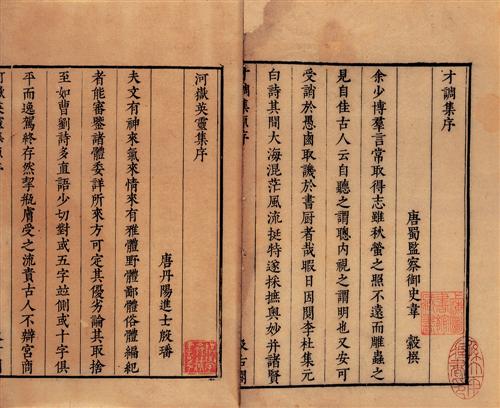 才調集序
唐蜀監察御史韋　縠撰
余少博羣言常取得志雖秋螢之照不遠而雕蟲之
見自佳古人云自聽之謂聰内視之謂明也又安可
受誚於愚鹵取譏於書厨者哉暇日因閱李杜集元
白詩其間大海混茫風流挺特遂採摭奥妙并諸賢
才調集序
汲古閣
河嶽英靈集序
唐丹陽進士殷璠
夫文有神來氣來情來有雅體野體鄙體俗體編紀
者能審鑒諸體委詳所來方可定其優劣論其取捨
至如曹劉詩多直語少切對或五字並側或十字俱
平而逸駕終存然挈瓶膚受之流責古人不辯宮商